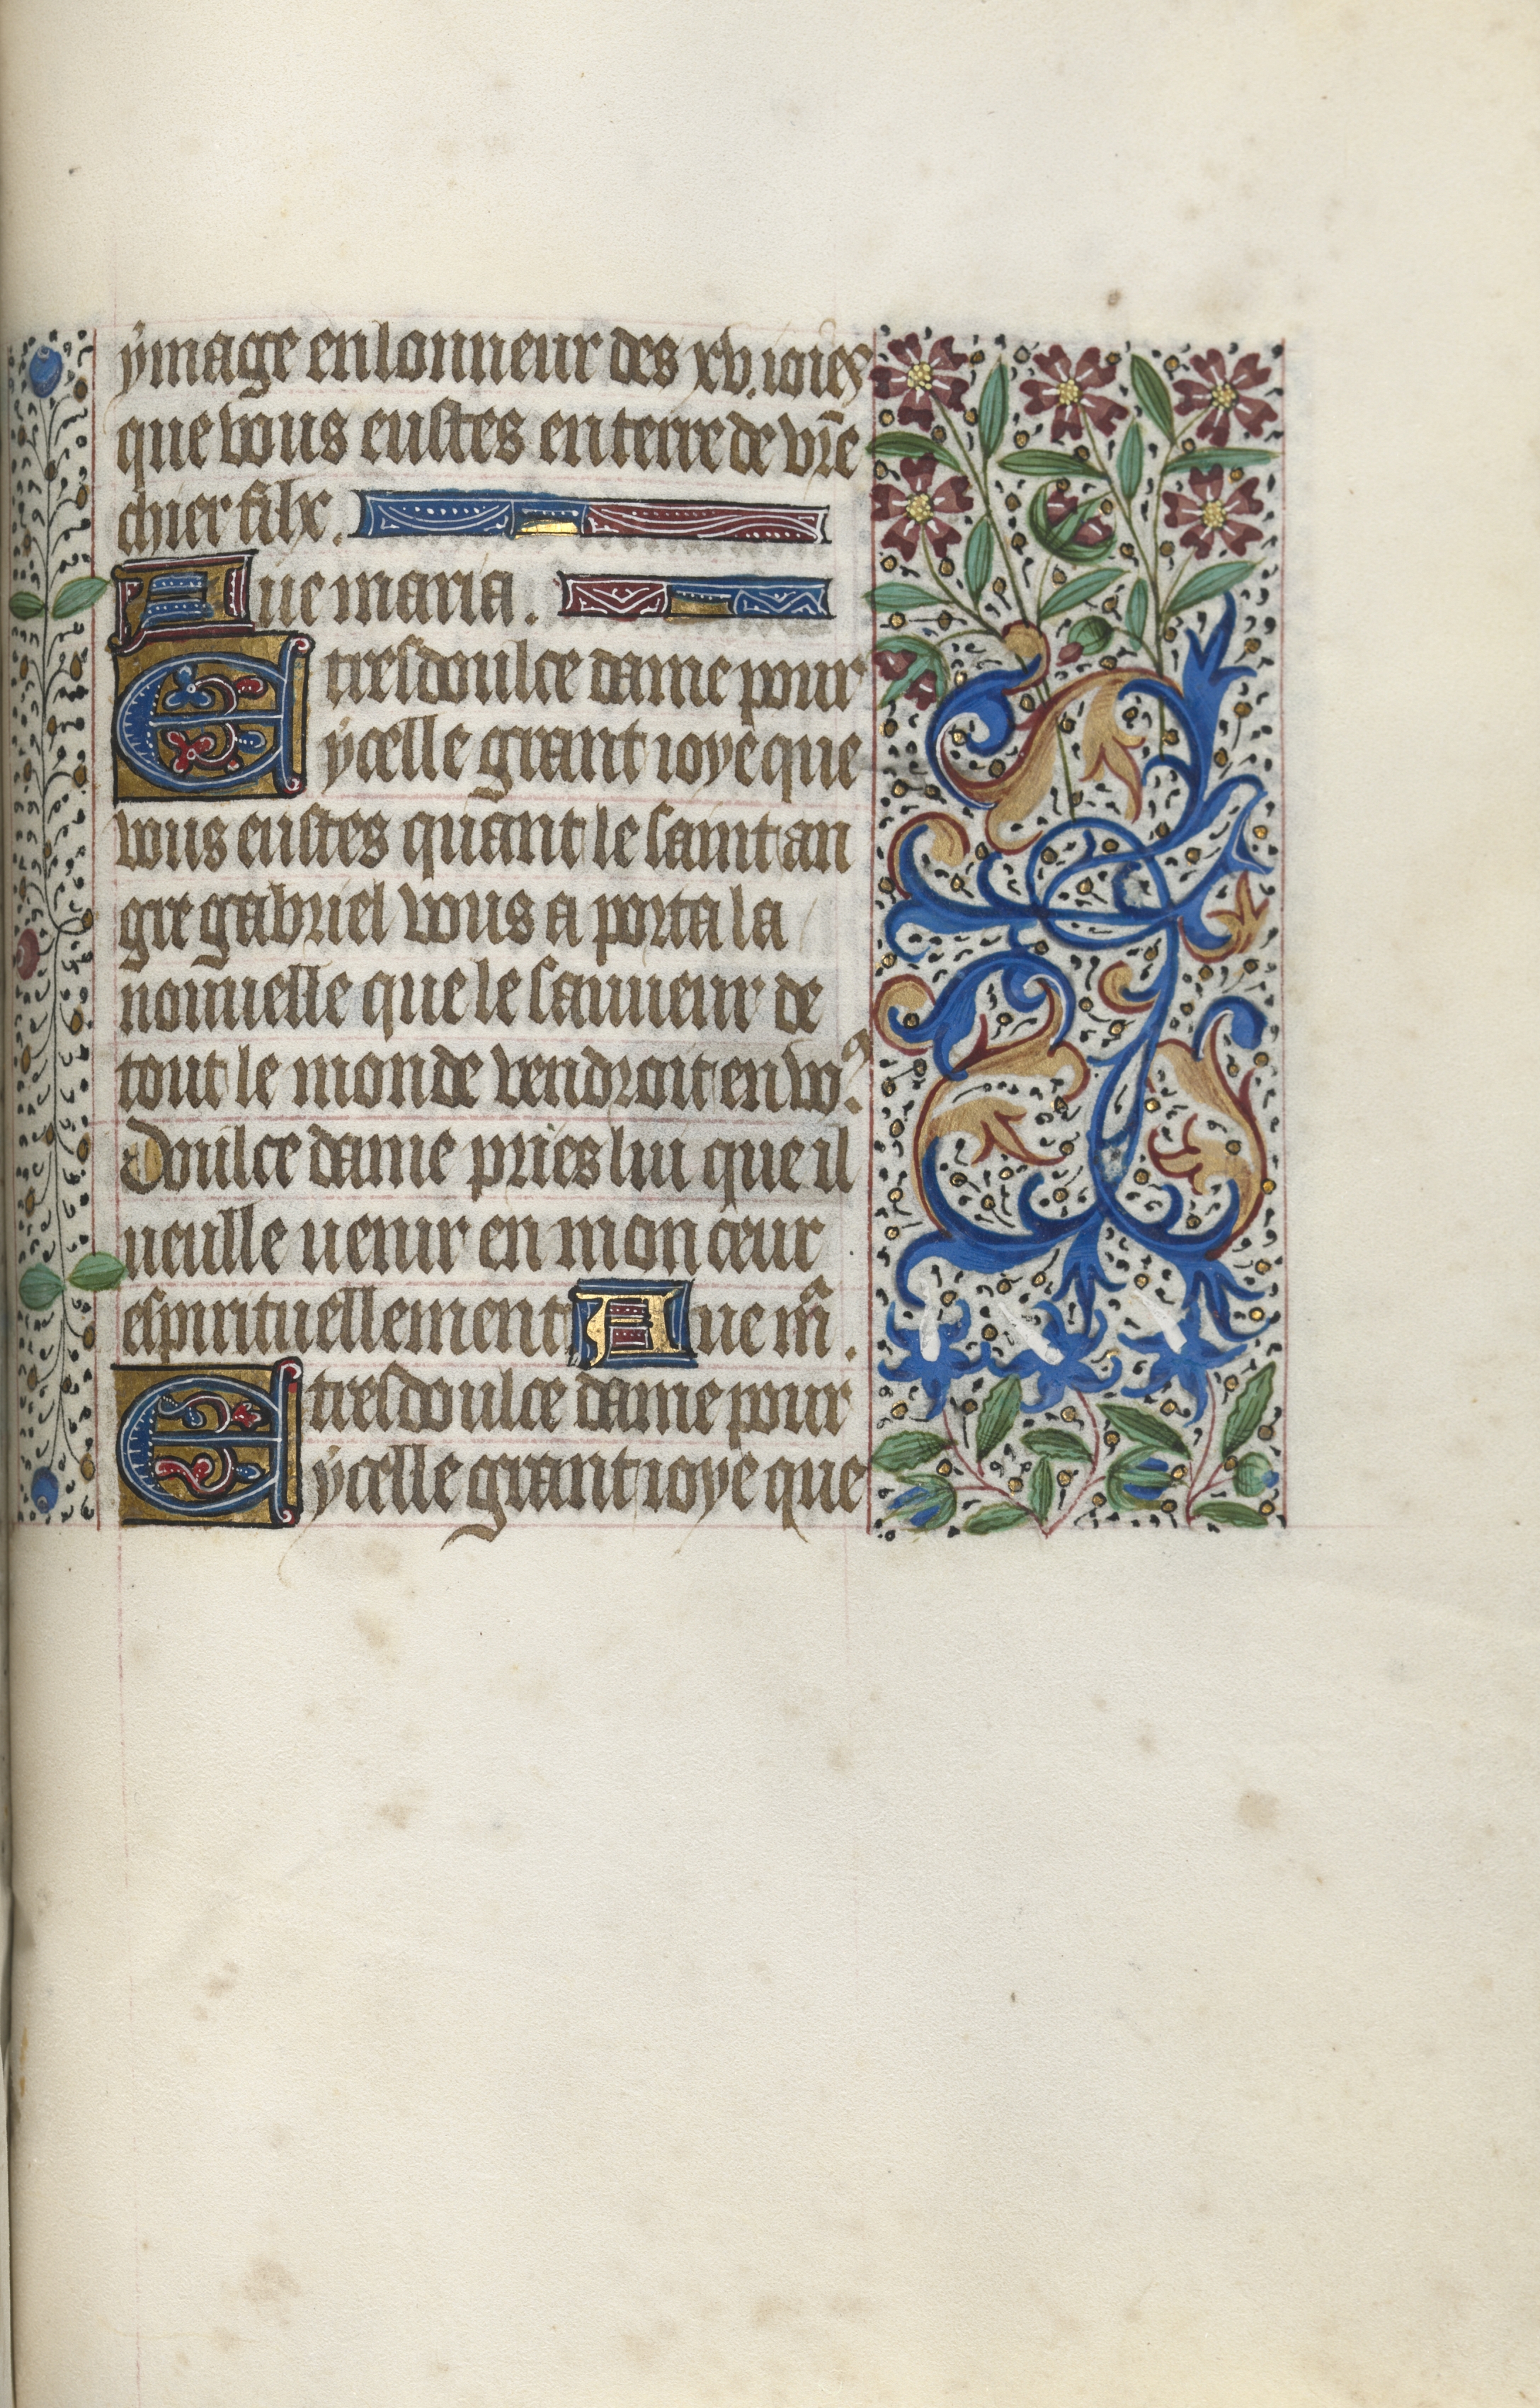 ymage en lonneur des xv. ioies
que vous eustes en terre de vr̄e
chier filx.
Aue maria.
E tresdoulce dame pour
ycelle grant ioye que
vous eustes quant le saint an
gre gabriel vous a porta la
nouuelle que le sauueur de
tout le monde vendroit en voꝰ.
Doulce dame pries lui que il
ueulle uenir en mon cœur
espirituellement Aue mᵃ.
E tresdoulce dame pour
ycelle grant ioye que